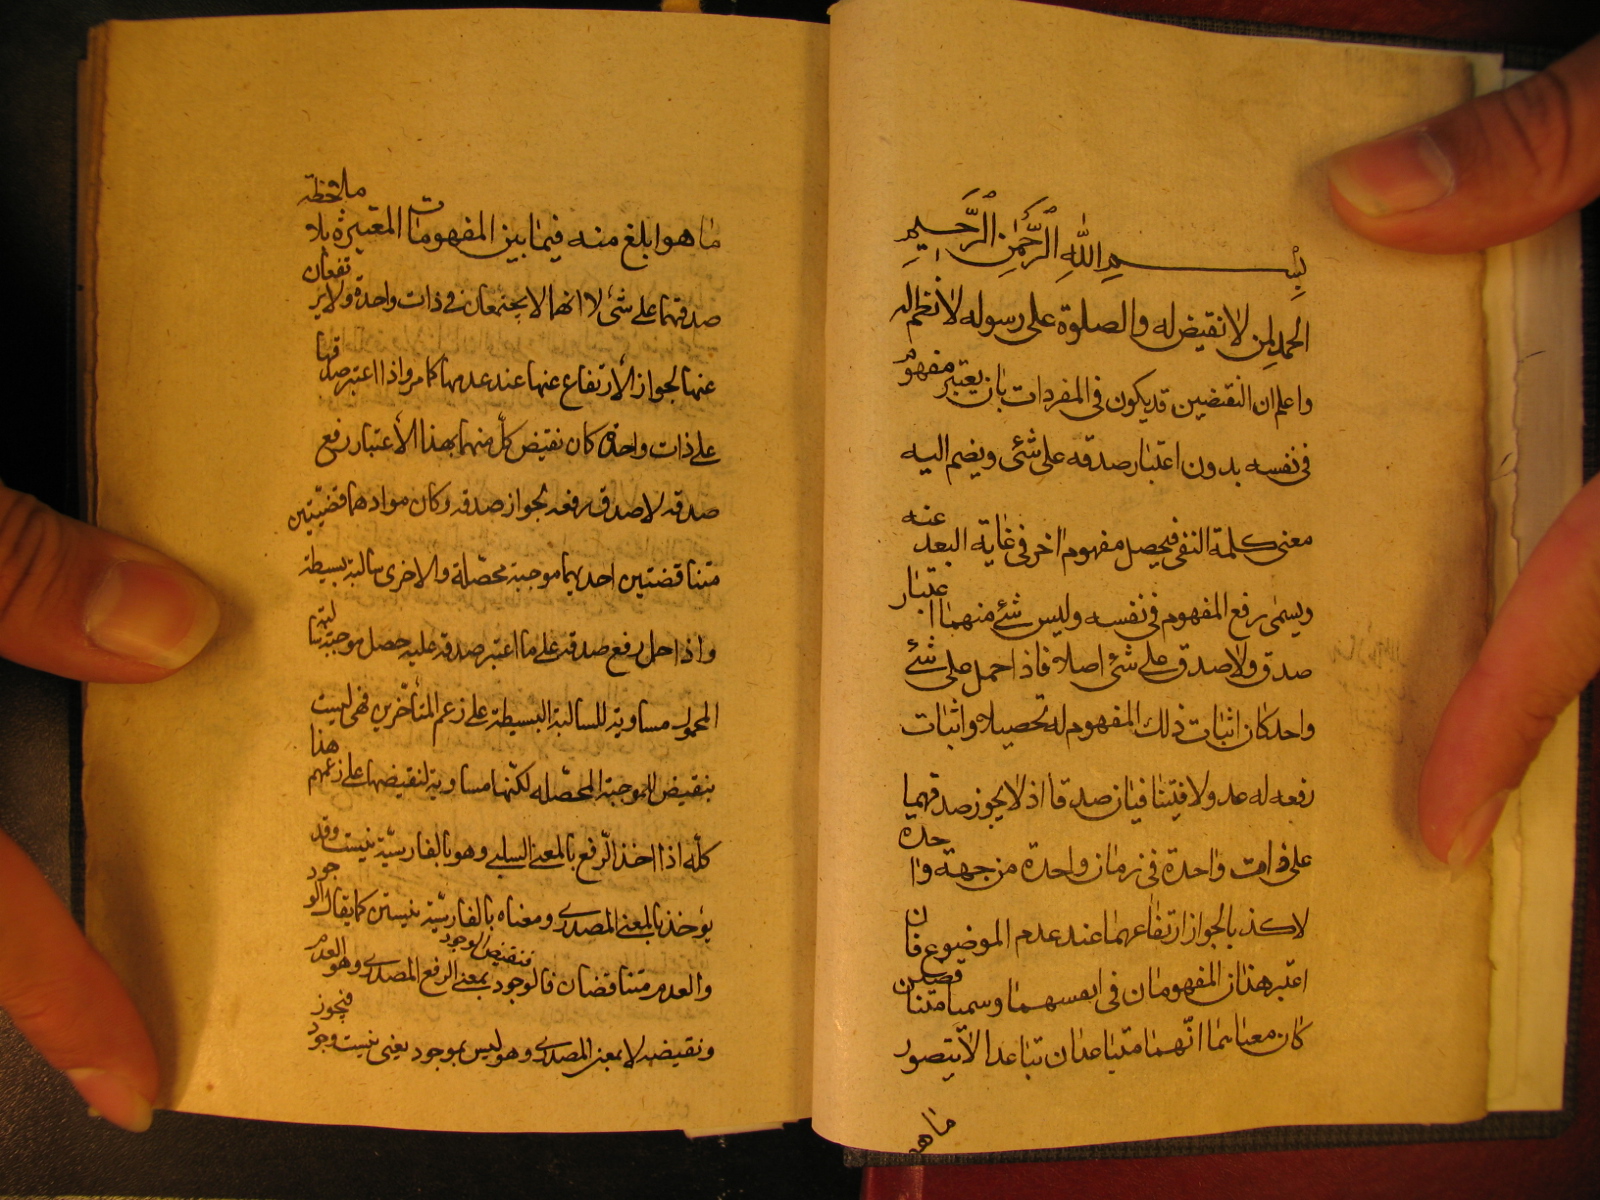 بسم الله الرحمن الرحيم
الحمد لمن لا نقيض له والصلوة على رسوله لا نظم له
واعلم ان النقيضين قد يكون فى المفردات بان يعتبر مفهوم
فى نفسه بدون اعتبار صدقه على شئ ويضم اليه
معنى كلمة النفى فيحصل مفهوم اخر فى غاية البعد عنه
ويسمى رفع المفهوم فى نفسه وليس شئ منهما اعتبار
صدق ولا صدق على شئ اصلا فاذا حمل على شئ
واحد كان اثبات ذلك المفهوم له تحصيلا واثبات
رفعه له عدولا فيتنافيان صدقا اذ لا يجوز صدقهما
على ذات واحدة فى زمان واحدة من جهة واحدة
لا كذبا لجواز ارتفاعهما عند عدم الموضوع فان
اعتبر هذان المفهومان فى انفسهما وسميا متناقضين
كان معناهما انهما متباعدان تباعدا لا يتصور
ما هو
ما هو ابلغ منه فيما بين المفهومات المعتبرة بلا ملاحظة
صدقهما على شئ لا انهما لا يجتمعان فى ذات واحدة ولا يرتفعان
عنها لجواز الارتفاع عنها عند عدمها كما مر واذا اعتبر صدقها
على ذات واحدة كان نقيض كل منهما بهذا الاعتبار رفع
صدقه لا صدق رفعه لجواز صدقه وكان موادهما قضيتين
متناقضتين احديهما موجبة محصلة والاخرى سالبة بسيطة
واذا حمل رفع صدقه على ما اعتبر صدقه عليه حصل موجبة سالبة
المحمول مساوية للسالبة البسيطة على زعم المتأخرين فهى ليست
بنقيض للموجبة المحصله لكنها مساوية لنقيضها على زعمهم هذا
كله اذا اخذ الرفع بالمعنى السلبى وهو بالفارسية نيست وقد
يوخذ بالمعنى المصدرى ومعناه بالفارسية نيستن كما يقال الوجود
والعدم متناقضان فالوجود بمعنى الرفع المصدرى وهو العدم
فنقيض الوجود
ونقيضه لا بمعنى المصدرى وهو ليس بموجود يعنى نيست وجود فيجوز